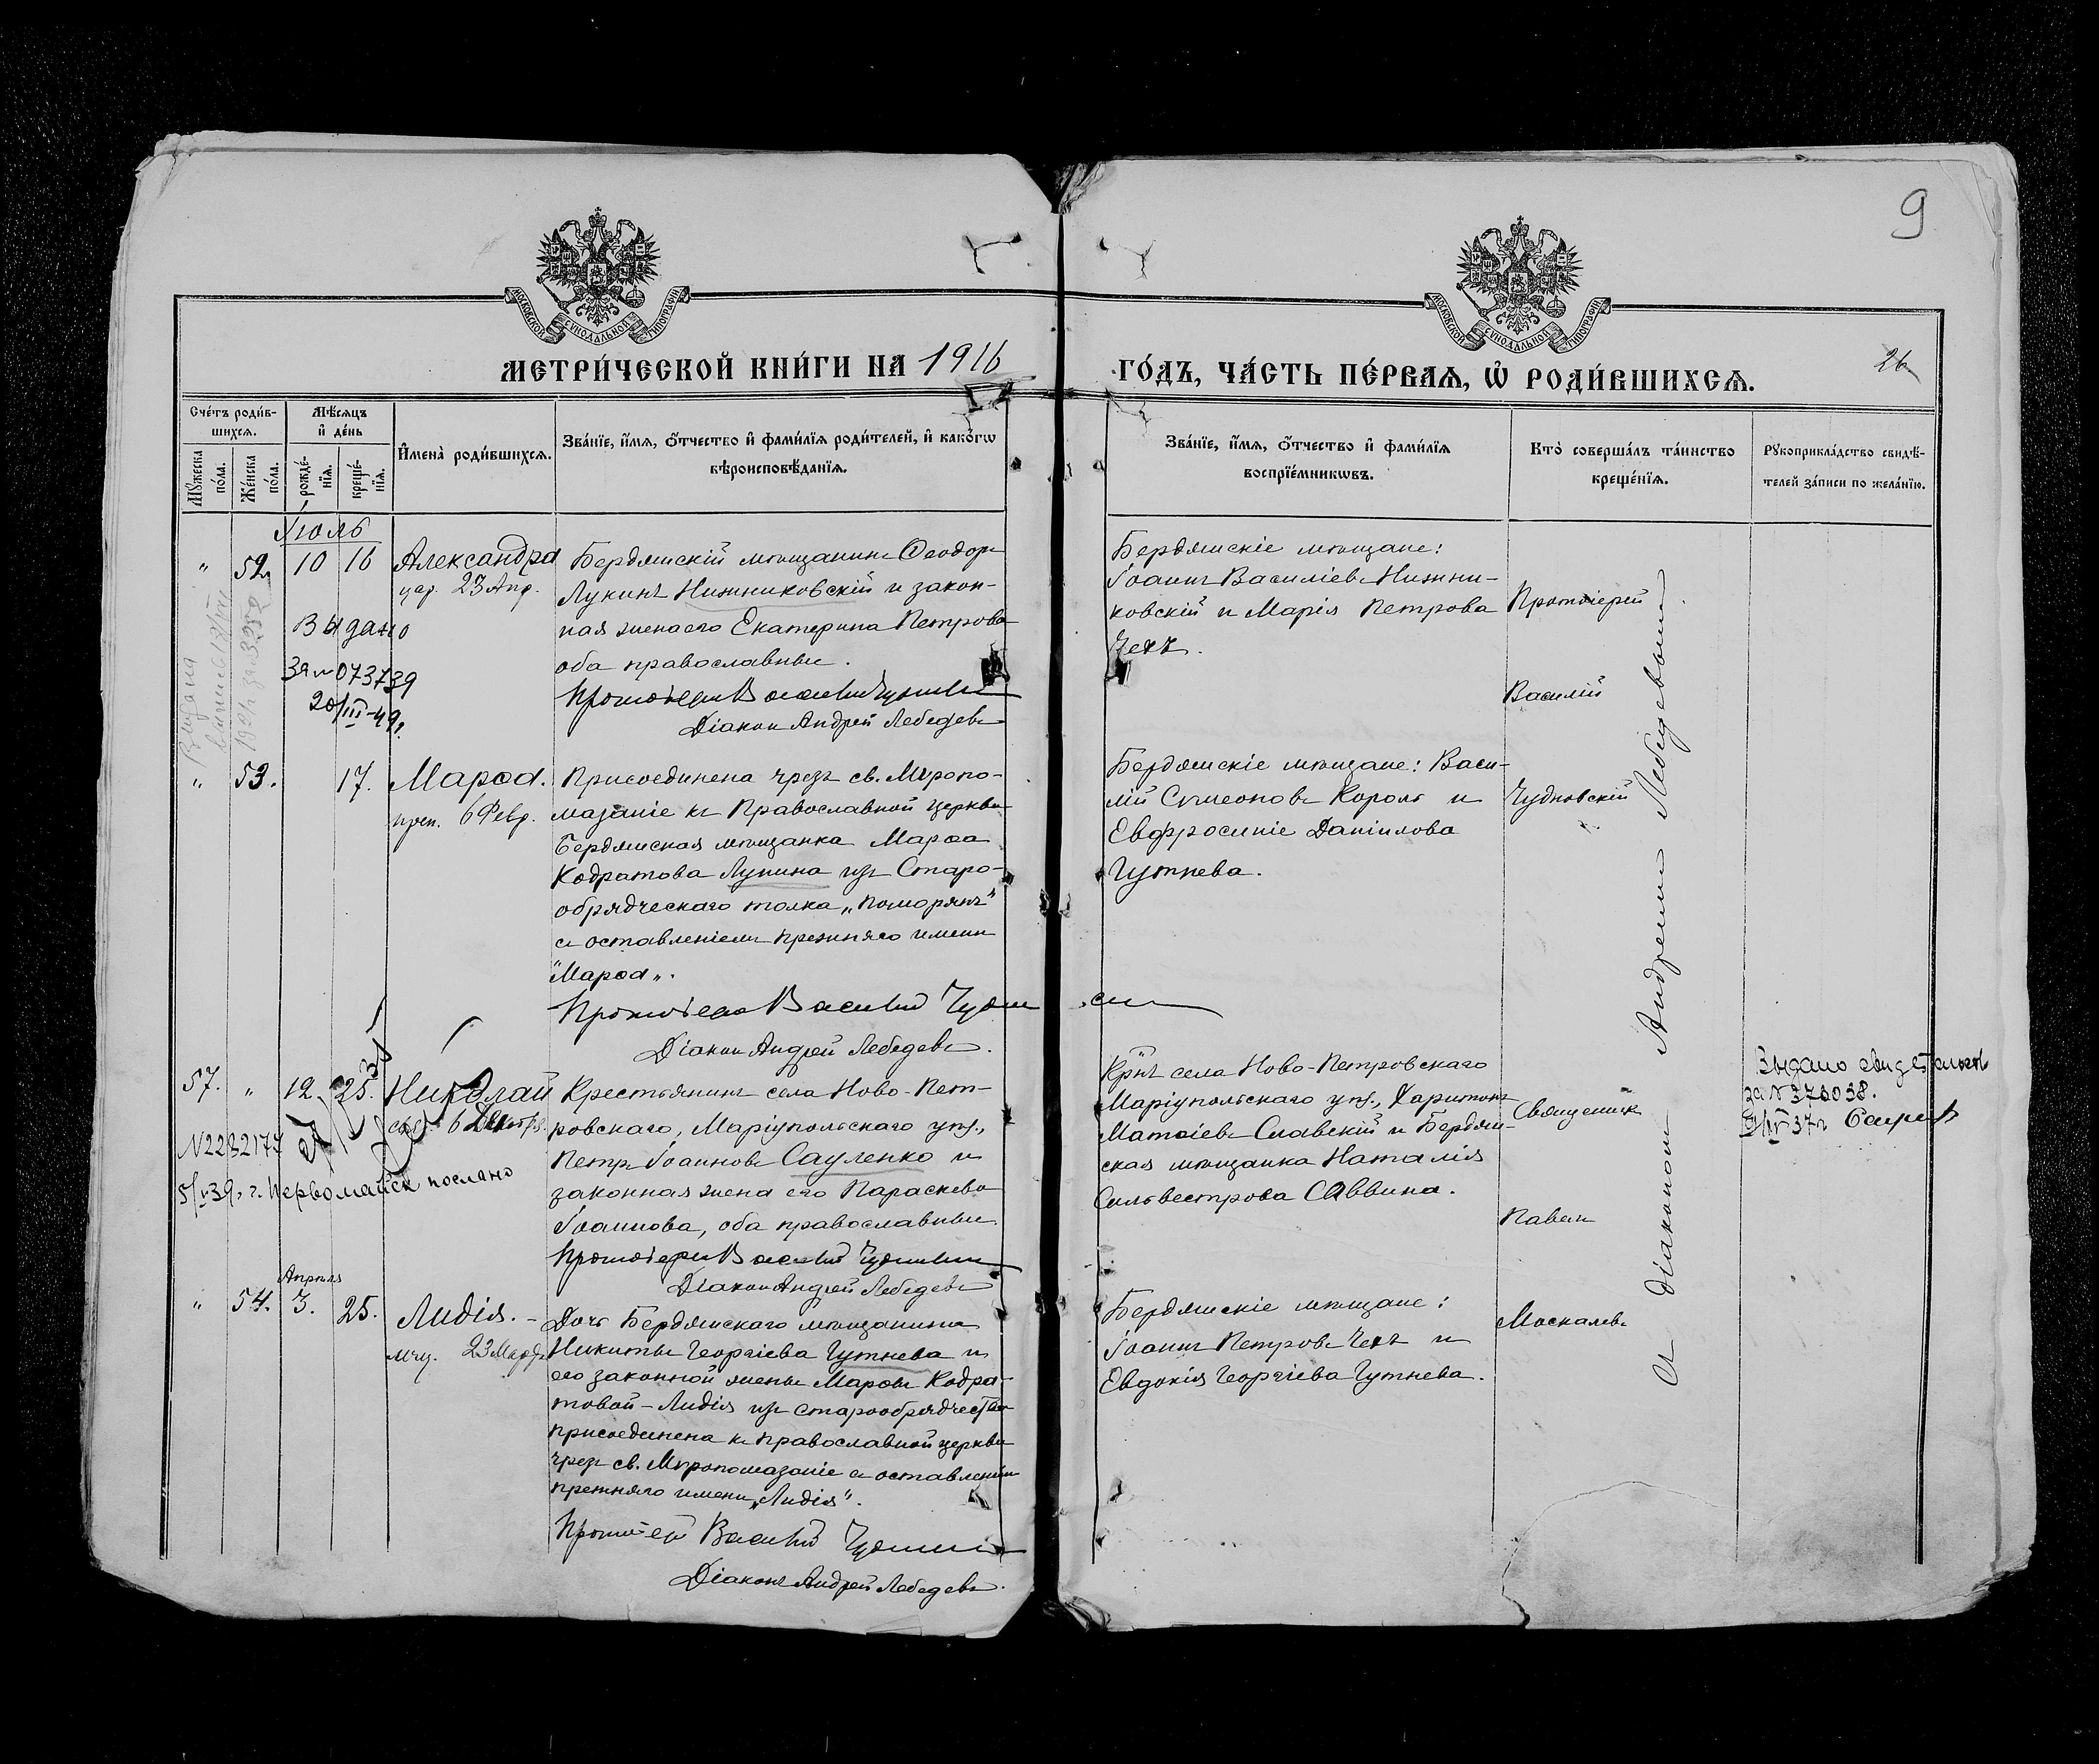 9
МОСКОВСКОЙ СѴНОДАЛЬНОЙ ТИПОГРАФІИ
МОСКОВСКОЙ СѴНОДАЛЬНОЙ ТИПОГРАФІИ
МЕТРИ́ЧЕСКОЙ КНИ́ГИ НА 1916
ГО́ДЪ, ЧА́СТЬ ПЕ́РВАѦ, Ѡ҆ РОДИ́ВШИХСѦ.
26
Сче́тъ роди́в-
шихсѧ.
Мꙋжеска
по́ла.
Же́нска
по́ла.
Мѣ́сѧцъ
и҆ де́нь
рожде́-
нїѧ.
креще́-
нїѧ.
И҆мена̀ роди́вшихсѧ.
Зва́нїе, и҆́мѧ, ѻ҆́тчество и҆ фами́лїѧ роди́телей, и҆ како́гѡ
вѣроисповѣ́данїѧ.
Зва́нїе, и҆́мѧ, ѻ҆́тчество и҆ фами́лїѧ
воспрїе́мникѡвъ.
Кто̀ соверша́лъ та́инство
креще́нїѧ.
Рꙋкоприкла́дство свидѣ́-
телей за́писи по жела́нїю.
Іюль
" 52 10 16 Александра
цар. 23 Апр.
Выдано
за № 073739
20/III-49г.
Бердянскій мѣщанинъ Ѳеодоръ
Лукинъ Нижниковскій и закон-
ная жена его Екатерина Петрова
оба православные.
Протоіерей Василій Чудновскій
Діаконъ Андрей Лебедевъ
Бердянскіе мѣщане:
Іоаннъ Василіевъ Нижни-
ковскій и Марія Петрова
Чехъ.
Протоіерей
Василій
Чудновскій
" 53. 17. Марѳа.
преп. 6 Февр.
Присоединена чрезъ св. Мѵропо-
мазаніе къ Православной церкви
Бердянская мѣщанка Марѳа
Кодратова Лунина изъ Старо-
обрядческаго толка „Поморянъ"
съ оставленіемъ прежняго имени
"Марѳа„.
Протоіерей Василій Чудновскій
Діаконъ Андрей Лебедевъ.
Бердянскіе мѣщане: Васи-
лій Симеоновъ Король и
Евфросинія Даніилова
Гутнева.
57. " 12. 25. Николай
6 Декабр.
N2232177
г. Первомайск послано
Крестьянинъ села Ново-Пет-
ровскаго, Маріупольскаго уѣз.,
Петръ Іоанновъ Сауленко и
законная жена его Параскева
Іоаннова, оба православные
Протоіерей Василій Чудновскій
Діаконъ Андрей Лебедевъ
Крнъ села Ново-Петровскаго
Маріупольскаго уѣз., Харитонъ
Матѳіевъ Славскій и Бердян-
ская мѣщанка Наталія
Сильвестрова Саввина.
Священникъ
Павелъ
Москалевъ
съ діакономъ Андреемъ Лебедевымъ
Выдано свидетельств
за № 373038.
" 54. Апрѣля 3. 25. Лидія. -
мчц. 23 Марта
Дочь Бердянскаго мѣщанина
Никиты Георгіева Гутнева и
его законной жены Марѳы Кодра-
товой - Лидія изъ старообрядчества
присоединена къ православной церкви
чрезъ св. Мѵропомазаніе съ оставленіем
прежняго имени „Лидія".
Протоіерей Василій Чудновскій
Діаконъ Андрей Лебедевъ.
Бердянскіе мѣщане:
Іоаннъ Петровъ Чехъ и
Евдокія Георгіева Гутнева.